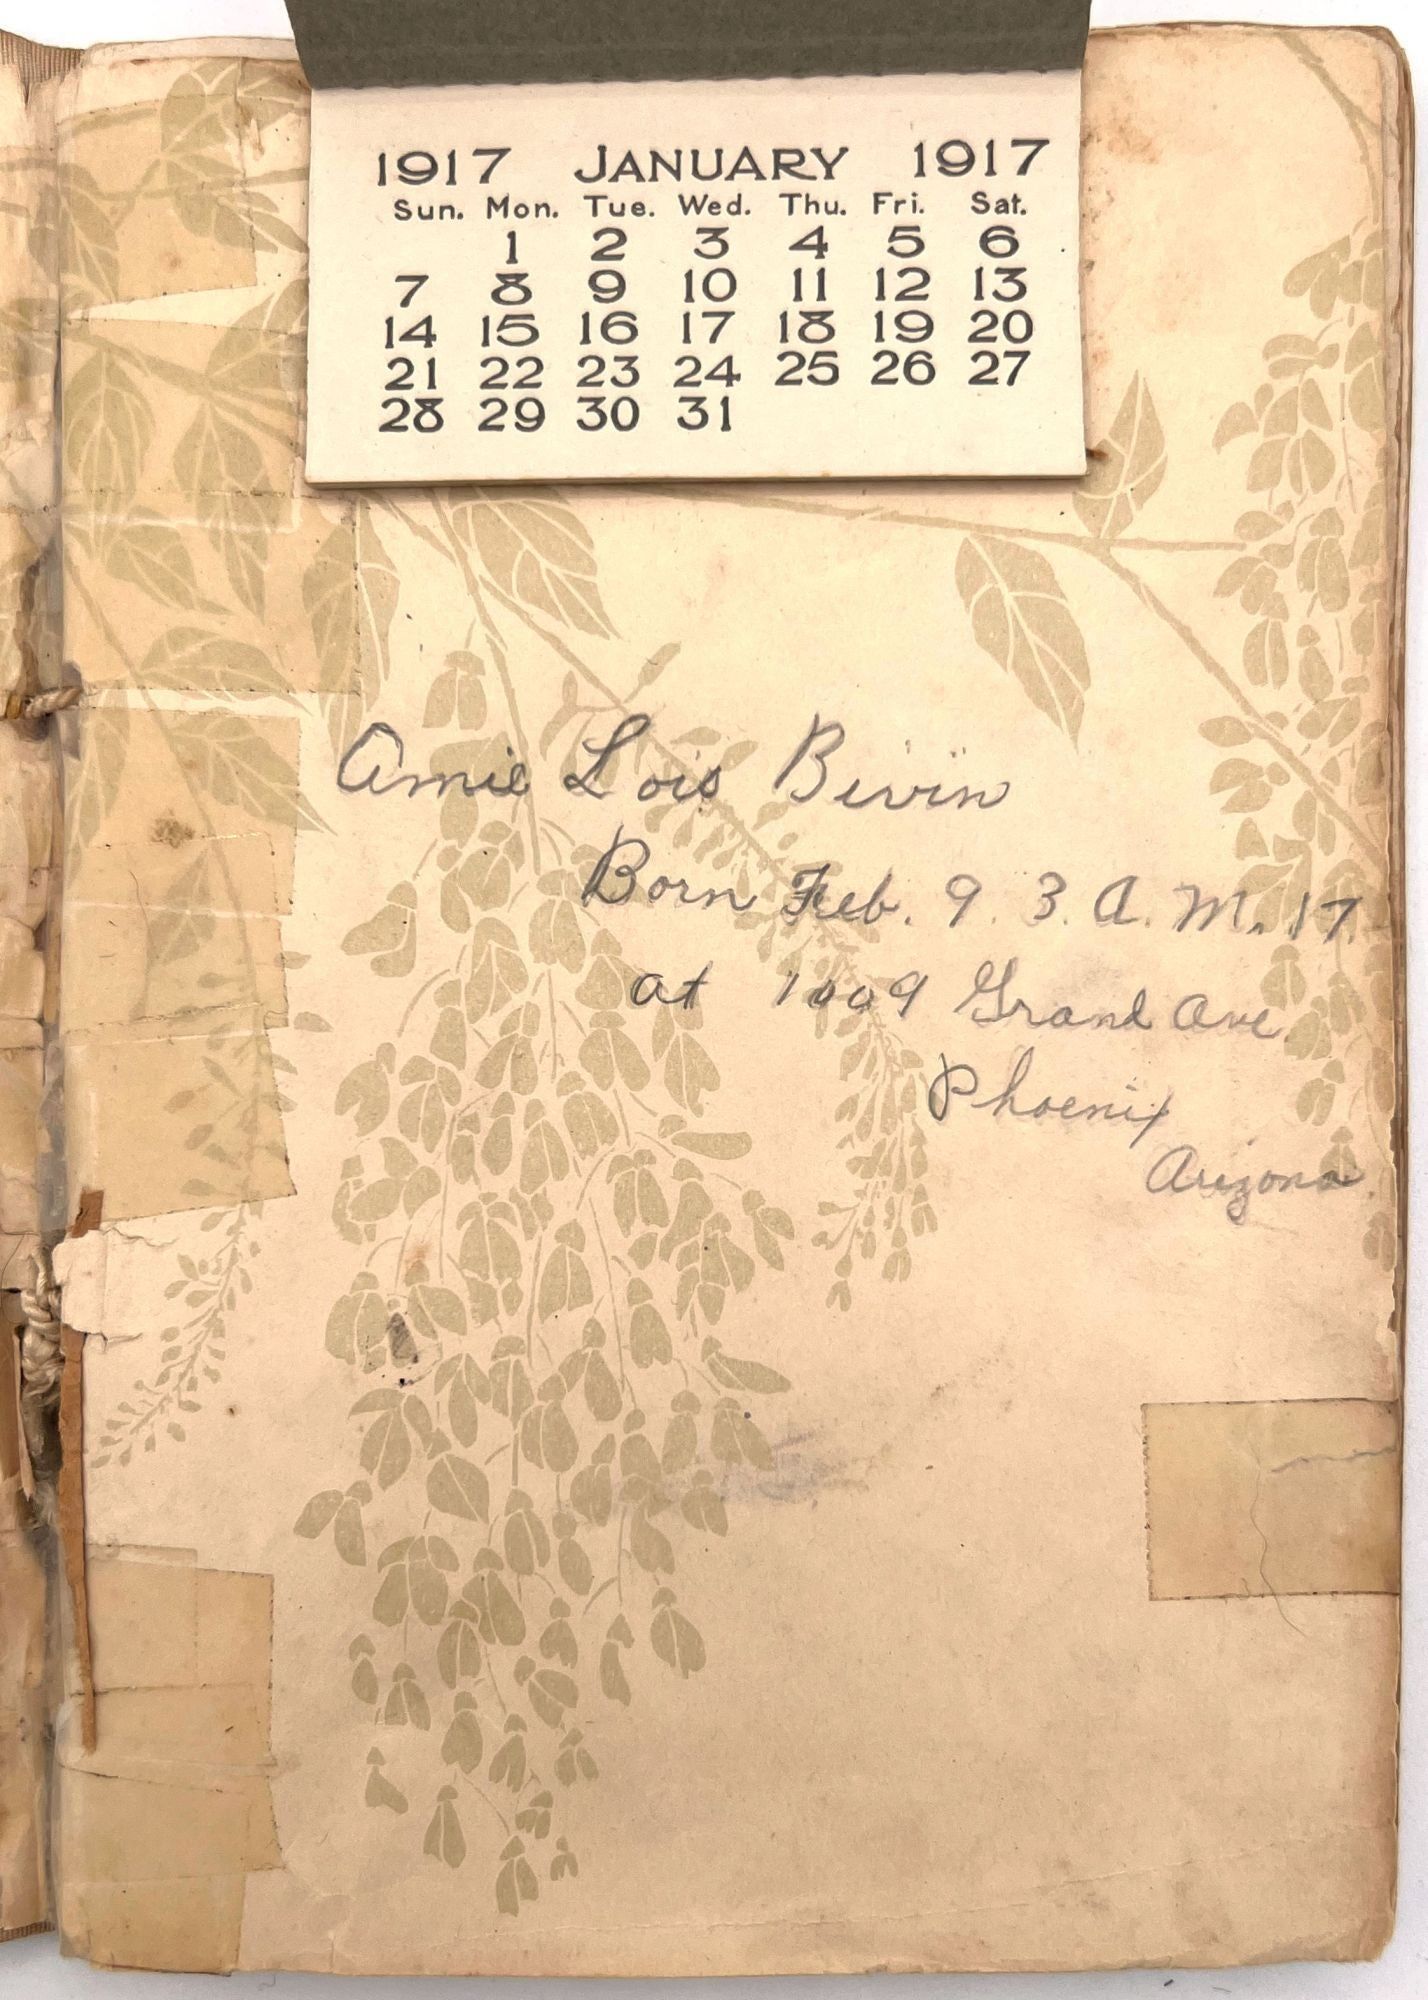 1917 JANUARY 1917
Sun. Mon. Tue. Wed. Thu. Fri. Sat.
1 2 3 4 5 6
7 8 9 10 11 12 13
14 15 16 17 18 19 20
21 22 23 24 25 26 27
28 29 30 31
Amie Lois Bivin
Born Feb. 9. 3. A. M. 17
at 1009 Grand Ave
Phoenix
Arizona